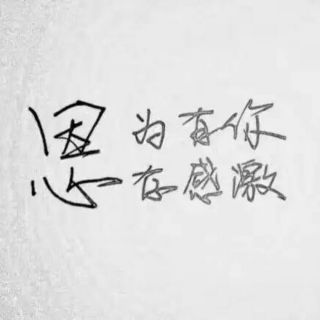 因为有你
心存感激